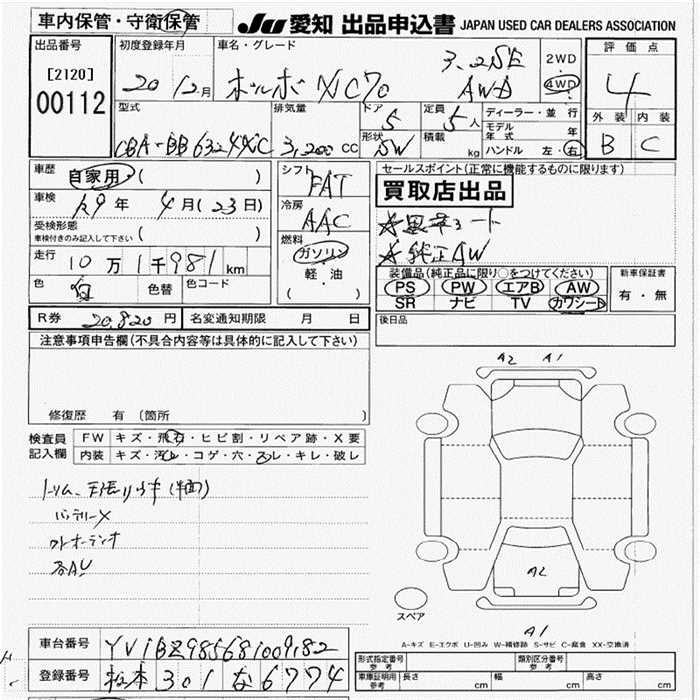 車内保管・守衛保管
JU 愛知 出品申込書 JAPAN USED CAR DEALERS ASSOCIATION
出品番号
[2120]
00112
初度登録年月
20 12月
車名・グレード
ボルボ XC70
3.2SE
AWD
2WD
4WD
評価点
4
外装 内装
B C
型式
CBA-BB6324XC
排気量
3,200 cc
ドア
5
形状
SW
定員
5人
積載
kg
ディーラー・並行
モデル年式 年
ハンドル 左・右
車歴 自家用 ( )
車検 29年 4月(23日)
受検形態
車検付きのみ記入して下さい ( )
走行 10万1千981km
色 白 色替 色コード
シフト
FAT
冷房
AAC
燃料
ガソリン
軽・油
( )
セールスポイント(正常に機能するものに限ります)
買取店出品
☆黒革シート
☆純正AW
装備品(純正品に限り○をつけてください)
PS PW エアB AW
SR ナビ TV カワシート
新車保証書
有・無
R券 20,820円 名変通知期限 月 日
後日品
注意事項申告欄(不具合内容等は具体的に記入して下さい)
修復歴 有 (箇所 )
検査員
記入欄
FW キズ・飛石・ヒビ割・リペア跡・X要
内装 キズ・汚レ・コゲ・穴・スレ・キレ・破レ
バッテリーX
A2 A1
A2
A1
スペア
A-キズ E-エクボ U-凹み W-補修跡 S-サビ C-腐食 XX-交換済
車台番号 YV1BZ985681009182
登録番号 松本 301 な 6774
形式指定番号
参考
類別区分番号
参考
車庫証明用
参考
長さ cm 幅 cm 高さ cm